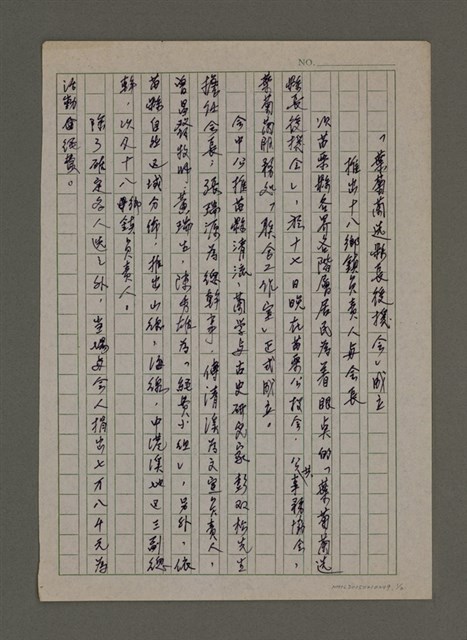 NO.
「葉菊蘭選縣長後援會」成立
推出十八鄉鎮負責人與會長
次苗栗縣各界各階層居民為着眼點的「葉菊蘭選
縣長後援會」,於十七日晚在苗栗公投會、公共事務協會、
葉菊蘭服務處「聯合工作室」正式成立。
會中公推苗縣清流、蘭學與古史研究家彭双松先生
擔任會長,張瑞源為總幹事,傅清溪為文宣負責人,
曾昌發牧師、黃瑞生、陳秀雄為「經費小組」,另外,依
苗縣自然區域分佈,推出山線、海線、中港溪地區三副總
幹,以及十八鄉鎮負責人。
除了確定名人選之外,當場與會人捐出七万八千元為
活動會經費。